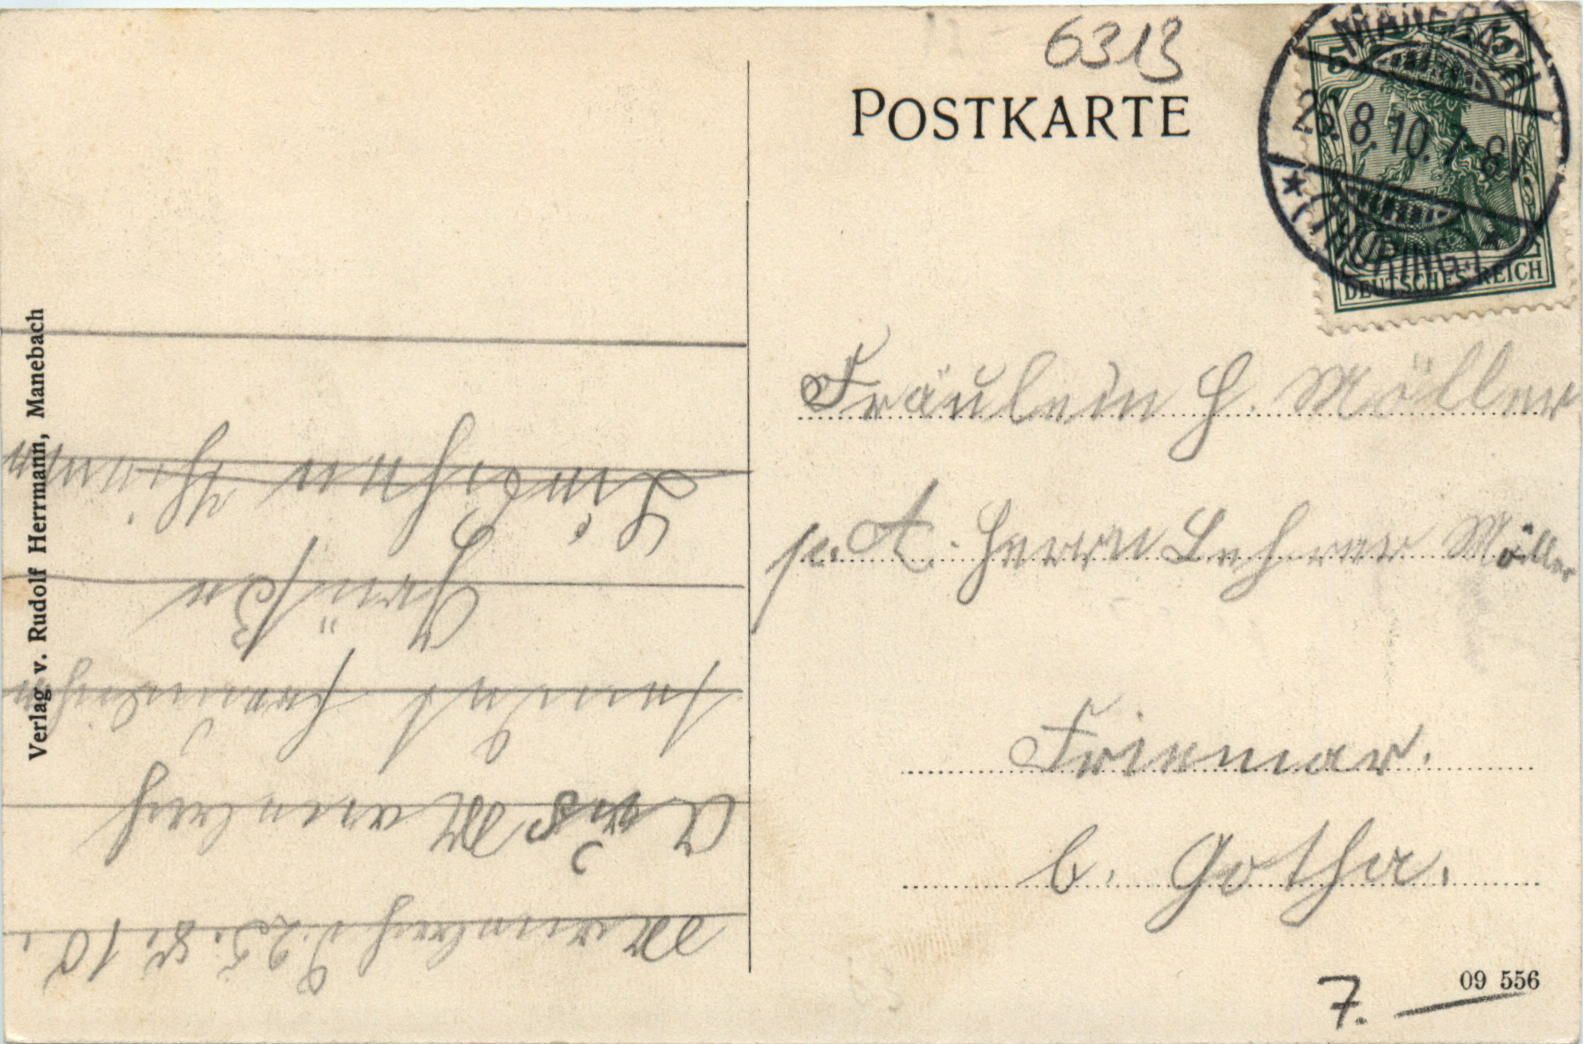 6313
POSTKARTE
MANEBACH
26. 8. 10. 7-8V.
(THÜRING.)
5 5
DEUTSCHES REICH
Fräulein H. Möller
p. A. Herrn Lehrer Möller
Friemar.
b. Gotha.
7.
09 556
Verlag v. Rudolf Herrmann, Manebach
Manebach d. 25. 8. 10.
Aus Manebach
sendet freundlichen
Grüße